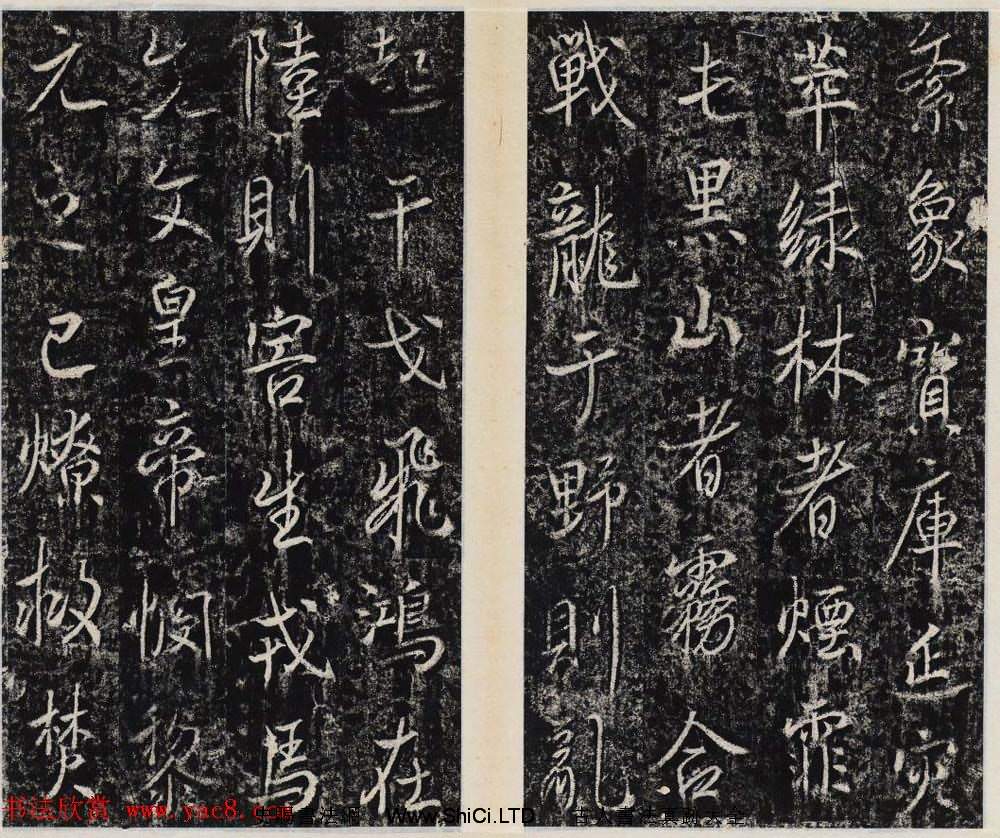 紊象寶庫延災
萃綠林者煙霏
屯黑山者霧合
戰龍于野則亂
起干戈飛鴻在
陸則害生戎馬
先文皇帝憫黎
元之已燎救焚
书法欣赏 www.yac8.com
www.ShiCi.LTD